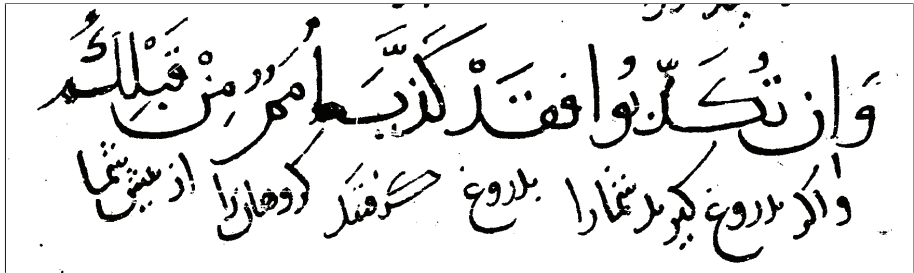 وَاِن تُكَذِّبُوا فَقَدْ كَذَّبَ اُمَمٌ مِنْ قَبْلِكُمْ
واکر بدروغ کیرند شمارا بدروغ کرفتند کروهانرا از پیش شما